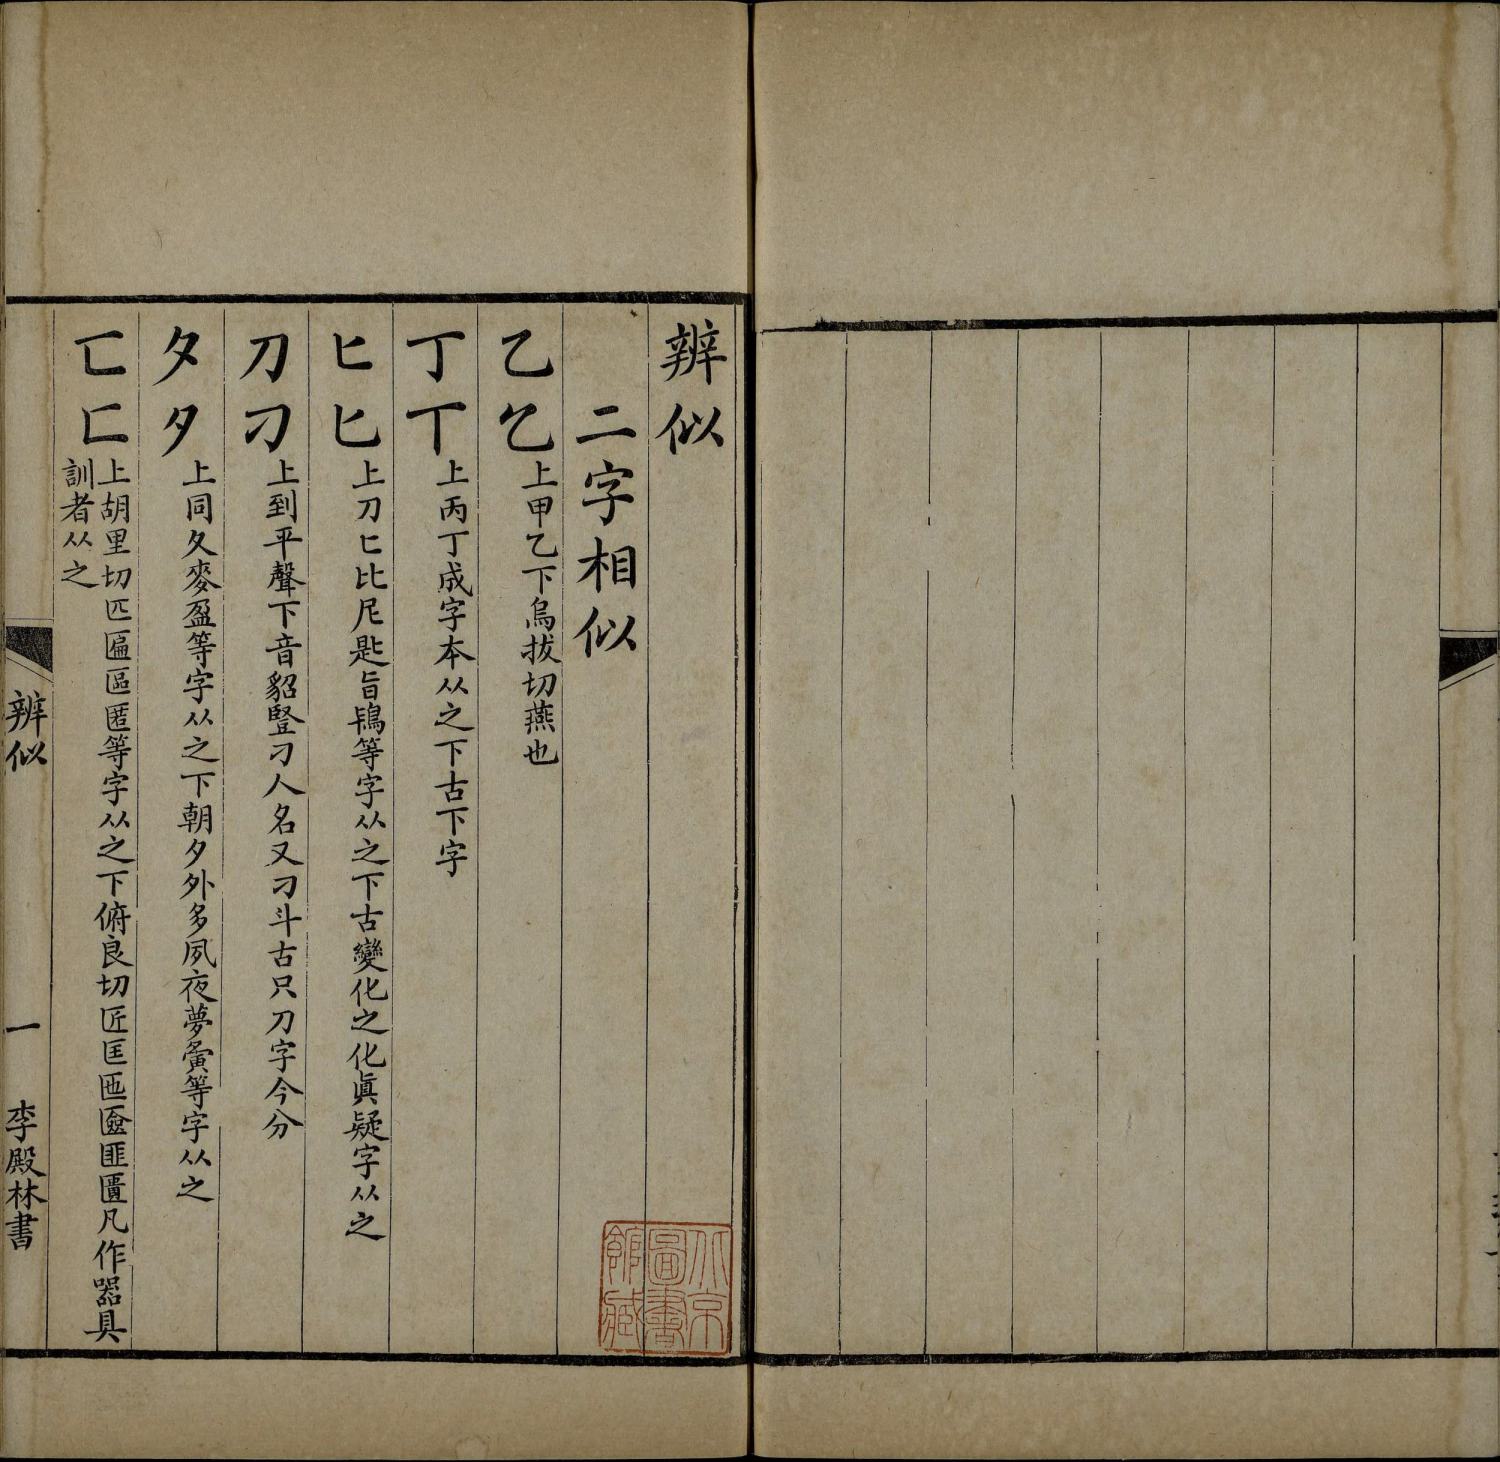 辨似
二字相似
乙乞上甲乙下烏拔切燕也
丁丅上丙丁成字本从之下古下字
匕𠤎上刀匕比尼匙旨鴇等字从之下古變化之化眞疑字从之
刀刁上到平聲下音貂豎刁人名又刁斗古只刀字今分
夂夕上同夂麥盈等字从之下朝夕外多夙夜夢夤等字从之
匸匚上胡里切匹匾區匿等字从之下俯良切匠匡匜匳匪匱凡作器具
訓者从之
辨似
一
李殿林書
北京
圖書
館藏